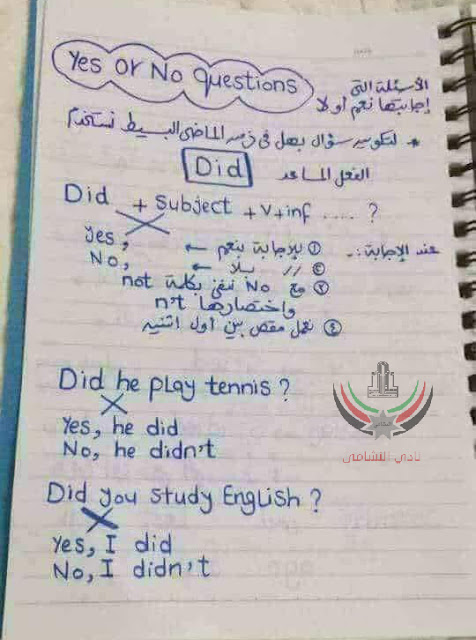 Yes or No questions
الأسئلة التي
إجابتها نعم أو لا
* لتكوين سؤال بهل في زمن الماضي البسيط نستخدم
الفعل المساعد Did
Did + Subject + V+inf .... ?
عند الإجابة:-
① للإجابة بنعم ← Yes,
② // بلا ← No,
③ مع No ننفي بكلمة not
واختصارها n't
④ نعمل مقص بين أول اثنين
Did he play tennis ?
Yes, he did
No, he didn't
Did you study English ?
Yes, I did
No, I didn't
نادي النشامى